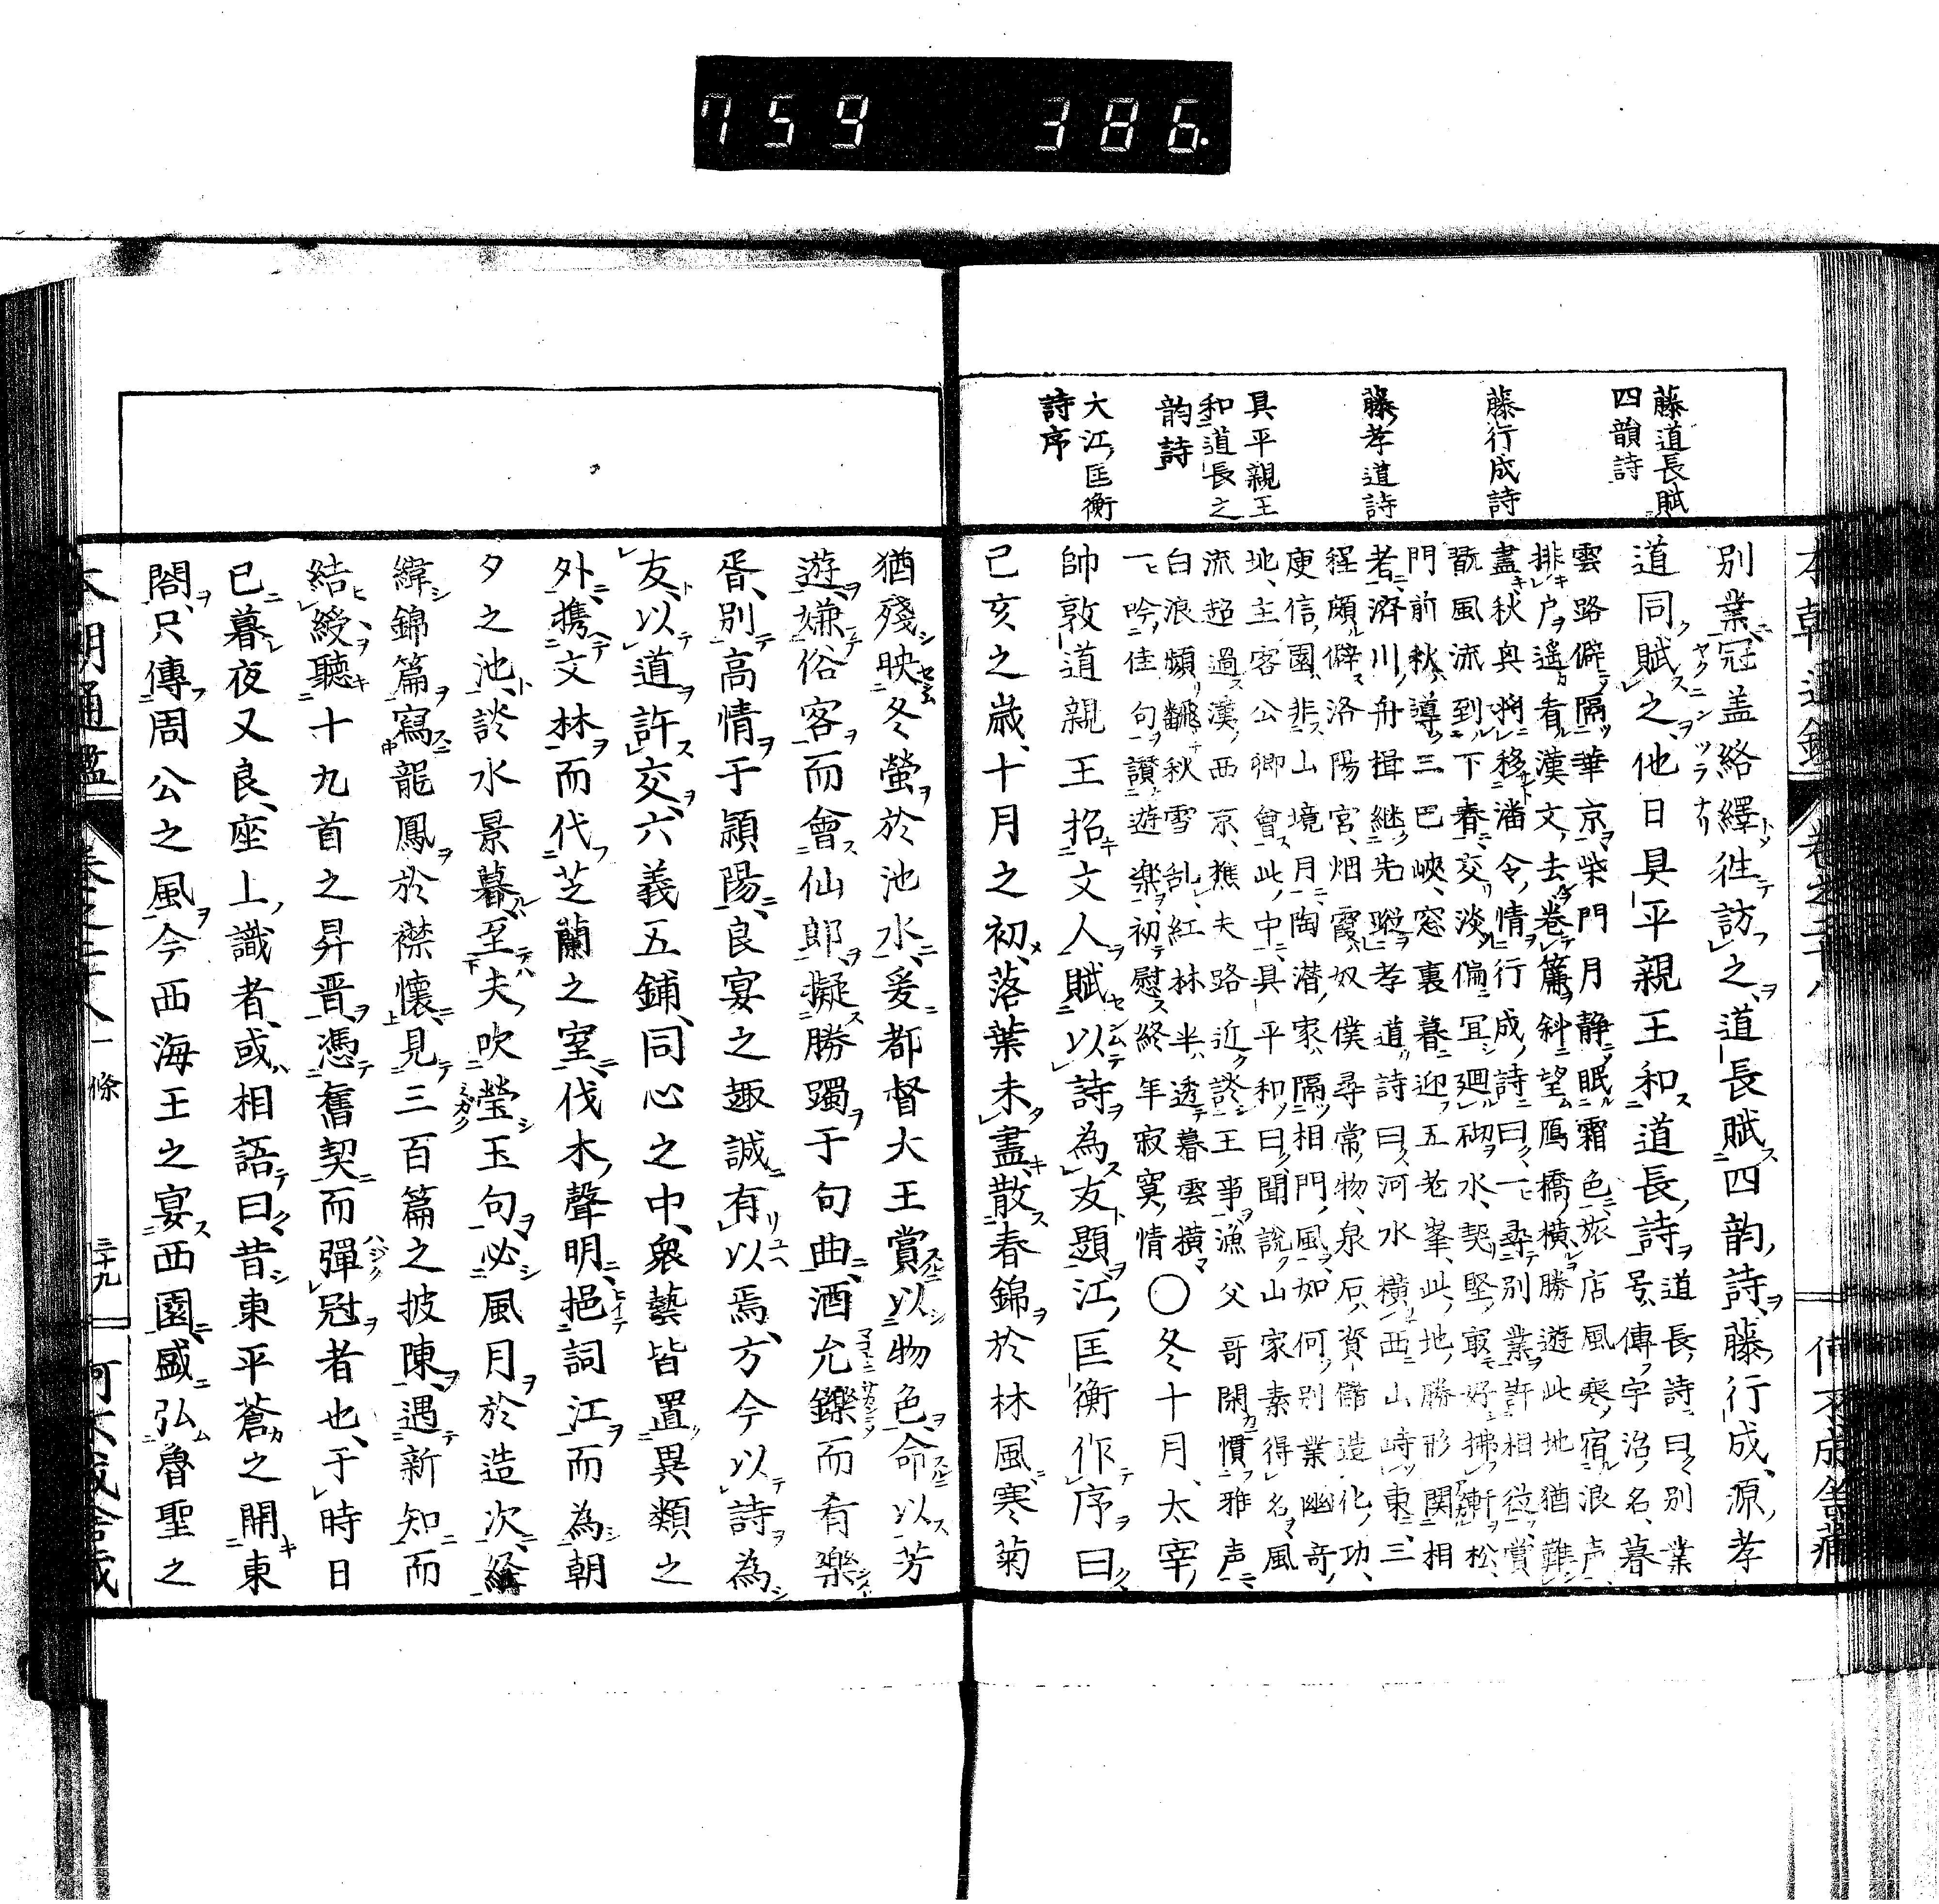 藤道長賦
四韻詩
藤行成詩
藤孝道詩
具平親王
和道長之
韵詩
大江匡衡
詩序
別業冠盖絡繹徃訪之道長賦四韵詩藤行成源孝
道同賦之他日具平親王和道長詩
道長詩曰別業
号傳宇治名暮
雲路僻隔華京柴門月静眠霜色旅店風寒宿浪声
排戸遥看漢文去卷簾斜望鴈橋橫勝遊此地猶難
盡秋奥將移潘令情行成詩曰一尋別業許相從賞
翫風流到下春交淡偏冝廻砌水契堅㝡好拂軒松
門前秋導三巴峽窓裏暮迎五老峯此地勝形関相
者濟川舟楫継先蹤孝道詩曰河水橫西山峙東三
徑頗僻洛陽宮烟霞奴僕尋常物泉石資儲造化功
庾信園悲山境月陶潜家隔相門風如何別業幽奇
地主客公卿會此中具平和曰聞說山家素得名風
流超過漢西京樵夫路近談王事漁父哥閑慣雅声
白浪頻飜秋雪乱紅林半透暮雲橫
一吟佳句讃遊楽初慰終年寂寞情
〇冬十月太宰
帥敦道親王招文人賦以詩為友題江匡衡作序曰
己亥之歳十月之初落葉未盡散春錦於林風寒菊
猶殘映冬螢於池水爰都督大王賞以物色命以芳
遊嫌俗客而會仙郎擬勝躅于句曲酒允鑠而肴樂
胥別高情于潁陽良宴之趣誠有以焉方今以詩為
友以道許交六義五鋪同心之中衆藝皆置異類之
外携文林而代芝蘭之室伐木聲明挹詞江而為朝
夕之池談水景暮至夫吹瑩玉句必風月於造次經
緯錦篇寫龍鳳於襟懷見三百篇之披陳遇新知而
結綬聽十九首之昇晋憑舊契而彈冠者也于時日
已暮夜又良座上識者或相語曰昔東平蒼之開東
閤只傳周公之風今西海王之宴西園盛弘魯聖之
本朝通鑑
一條
三十九